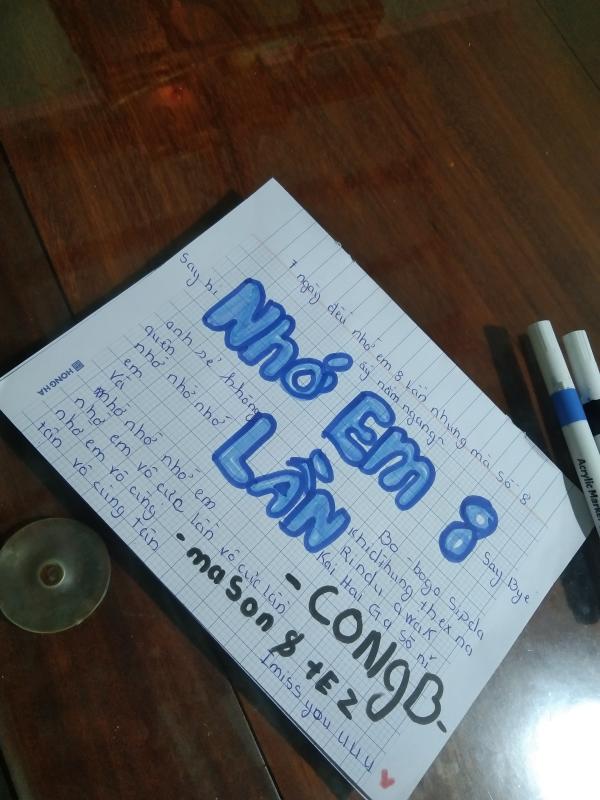 7 ngày đều nhớ em 8 Lần nhưng mà số 8
ấy nằm ngang
say hi
Nhớ Em 8
LẦN
anh sẽ không
quên
nhớ nhớ nhớ
em
và
nhớ nhớ nhớ em
nhớ em vô cực lần vô cực lần
nhớ em vô cùng
tận vô cùng tận
say Bye
Bo-bogo sipda
khidthung thex na
Rindu awak
Kai Hai Ga sō ni
- CONGB -
- mason & tEz
I miss you uuu
HONG HA
Acrylic Marker